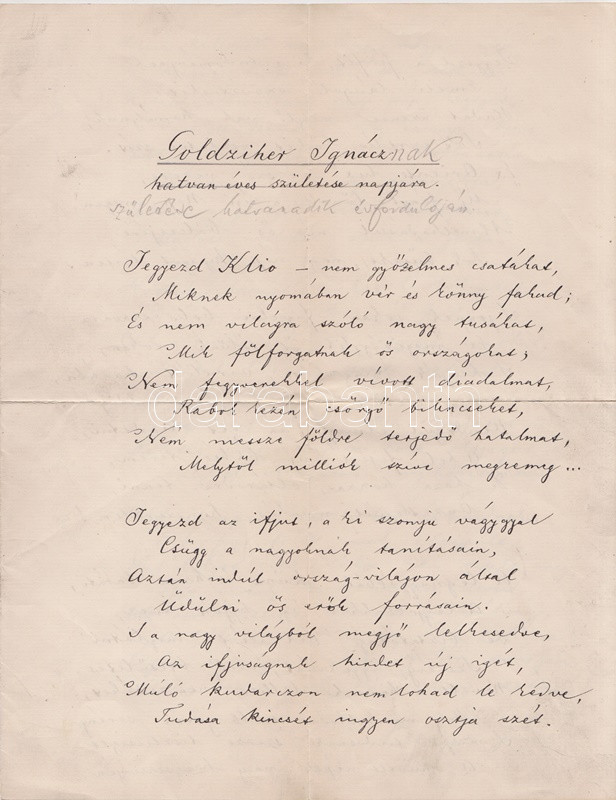 Goldziher Ignácznak
hatvan éves születése napjára.
születése hatvanadik évfordulóján
Jegyezd Klio – nem győzelmes csatákat,
Miknek nyomában vér és könny fakad;
És nem világra szóló nagy tusákat,
Mik fölforgatnak ős országokat;
Nem fegyverekkel vívott diadalmat,
Rabok kezén csörgő bilincseket,
Nem messze földre terjedő hatalmat,
Melytől milliók szíve megremeg ...
Jegyezd az ifjut, a ki szomju vágygyal
Csügg a nagyoknak tanításain,
Aztán indúl ország-világon által
Üdülni ős erők forrásain.
S a nagy világból megjő lelkesedve,
Az ifjuságnak hirdet új igét,
Múló kudarczon nem lohad le kedve,
Tudása kincsét ingyen osztja szét.
darabanth